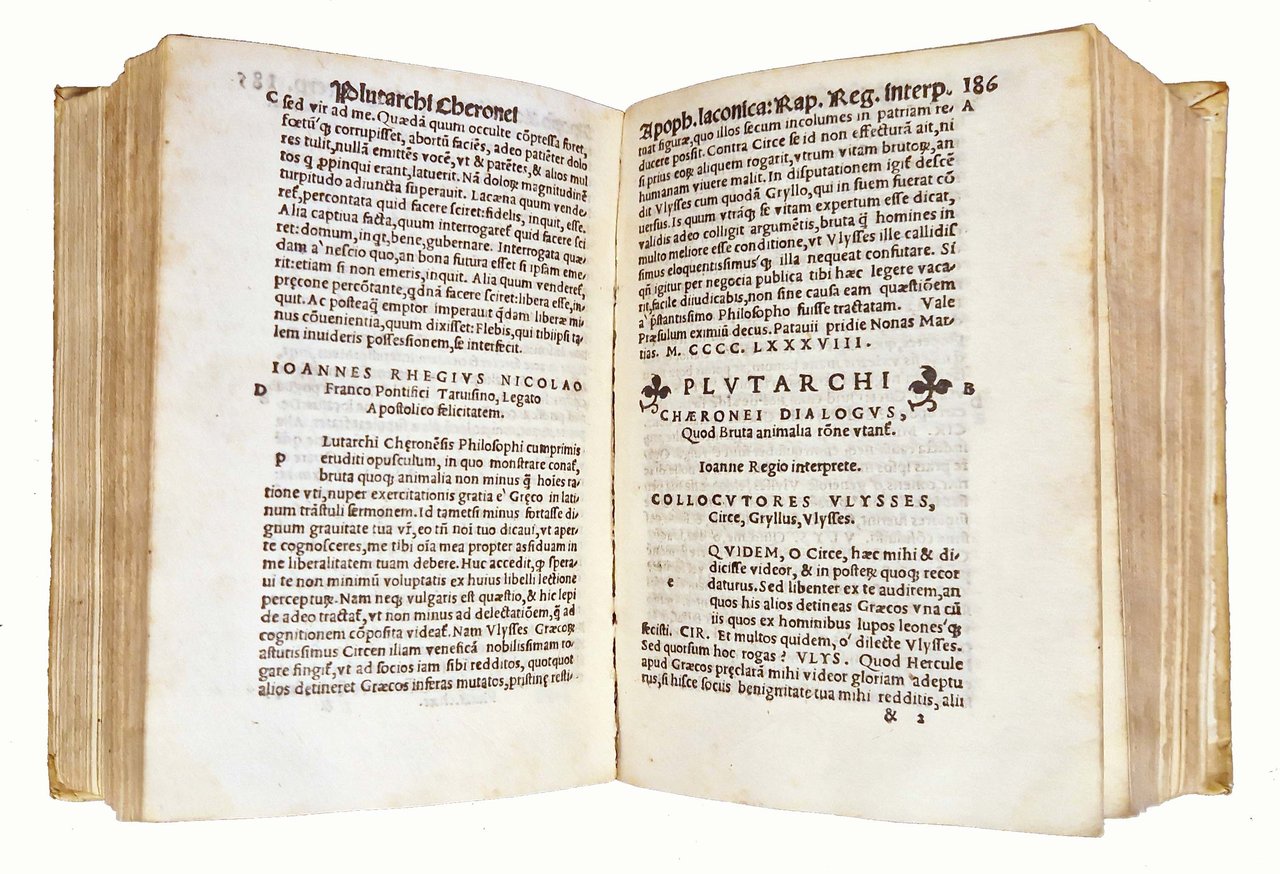 Plutarchi Cheronei
C sed vir ad me. Quædã quum occulte cõpressa foret,
fœtũ'q; corrupisset, abortũ faciẽs, adeo patiẽter dolo
res tulit, nullã emittẽs vocẽ, vt & patẽtes, & alios mul
tos q ꝓpinqui erant, latuerit. Nã doloꝝ magnitudinẽ
turpitudo adiuncta superauit. Lacæna quum vende⸗
ret̃, percontata quid facere sciret: fidelis, inquit, esse.
Alia captiua facta, quum interrogaret̃ quid facere sci
ret: domum, inqt, bene, gubernare. Interrogata quæ⸗
dam a' nescio quo, an bona futura esset si ipsam eme⸗
rit: etiam si non emeris, inquit. Alia quum venderet̃,
pręcone percõtante, qdnã facere sciret: libera esse, in⸗
quit. Ac posteaq̃ emptor imperauit q̃dam liberæ mi⸗
nus cõuenientia, quum dixisset: Flebis, qui tibiipsi ta⸗
lem inuideris possessionem, se interfecit.
IOANNES RHEGIVS NICOLAO
D Franco Pontifici Taruisino, Legato
Apostolico felicitatem.
Lutarchi Chęronẽsis Philosophi cumprimis
p eruditi opusculum, in quo monstrare conat̃,
bruta quoq; animalia non minus q̃ hoies ra⸗
tione vti, nuper exercitationis gratia e' Gręco in lati⸗
num trãstuli sermonem. Id tametsi minus fortasse di⸗
gnum grauitate tua vr̃, eo tñ noi tuo dicaui, vt aper⸗
te cognosceres, me tibi oĩa mea propter assiduam in
me liberalitatem tuam debere. Huc accedit, ꝙ spera⸗
ui te non minimũ voluptatis ex huius libelli lectione
percepturꝝ. Nam neq; vulgaris est quæstio, & hic lepi
de adeo tractat̃, vt non minus ad delectatiõem, q̃ ad
cognitionem cõposita videat̃. Nam Vlysses Græcoꝝ
astutissimus Circen illiam veneficã nobilissimam ro⸗
gare fingit̃, vt ad socios iam sibi redditos, quotquot
alios detineret Græcos inferas mutatos, pristinę resti⸗
Apoph. laconica: Rap. Reg. interp. 186
tuat figuræ, quo illos secum incolumes in patriam re⸗ A
ducere possit. Contra Circe se id non effecturã ait, ni
si prius eoꝝ aliquem rogarit, vtrum vitam brutoꝝ, an
humanam viuere malit. In disputationem igit̃ descẽ
dit Vlysses cum quodã Gryllo, qui in suem fuerat cõ
uersus. Is quum vtrãq; se vitam expertum esse dicat,
validis adeo colligit argumẽtis, bruta q̃ homines in
multo meliore esse conditione, vt Vlysses ille callidis
simus eloquentissimus'q; illa nequeat confutare. Si
qñ igitur per negocia publica tibi hæc legere vaca⸗
rit, facile diiudicabis, non sine causa eam quæstiõem
a' p̃stantissimo Philosopho fuisse tractatam. Vale
Præsulum eximiũ decus. Patauii pridie Nonas Mar⸗
tias. M. CCCC. LXXXVIII.
PLVTARCHI B
CHÆRONEI DIALOGVS,
Quod Bruta animalia rõne vtant̃.
Ioanne Regio interprete.
COLLOCVTORES VLYSSES,
Circe, Gryllus, Vlysses.
QVIDEM, O Circe, hæc mihi & di⸗
dicisse videor, & in posteꝝ quoq; recor
e daturus. Sed libenter ex te audirem, an
quos his alios detineas Græcos vna cũ
iis quos ex hominibus lupos leones'q;
fecisti. CIR. Et multos quidem, o' dilecte Vlysses.
Sed quorsum hoc rogas? VLYS. Quod Hercule
apud Græcos pręclarã mihi videor gloriam adeptu
rus, si hisce sociis benignitate tua mihi redditis, alii
& 2